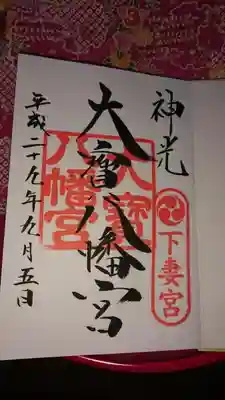 神光
下妻宮
大寶八幡宮
大寶八幡宮
平成二十九年九月五日